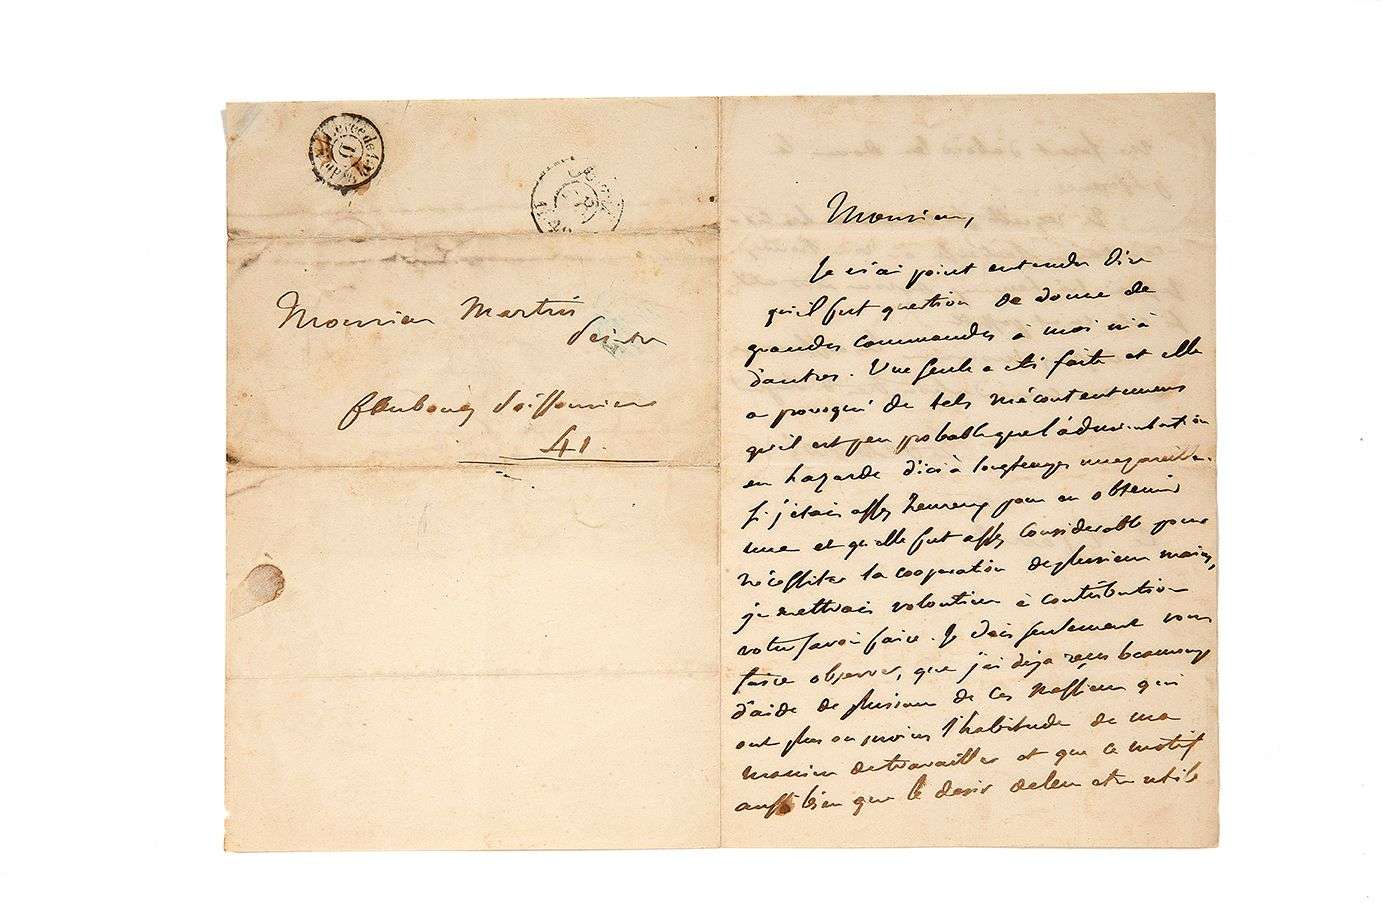 Levée de
Monsieur Martin
Peintre
faubourg Poissonnière
41.
Monsieur,
Je n'ai point entendu dire
qu'il fut question de donner de
grandes commandes à moi ni à
d'autres. Une seule a été faite et elle
a provoqué de tels mécontentemens
qu'il est peu probable que l'administration
en hazarde d'ici à longtemps une pareille.
Si j'étais assez heureux pour en obtenir
une et qu'elle fut assez considérable pour
nécessiter la coopération de plusieurs mains,
je mettrais volontiers à contribution
votre savoir faire. Je dois seulement vous
faire observer, que j'ai déja reçu beaucoup
d'aide de plusieurs de ces Messieurs qui
ont plus ou moins l'habitude de ma
manière de travailler et que ce motif
aussi bien que le desir de leur etre utile